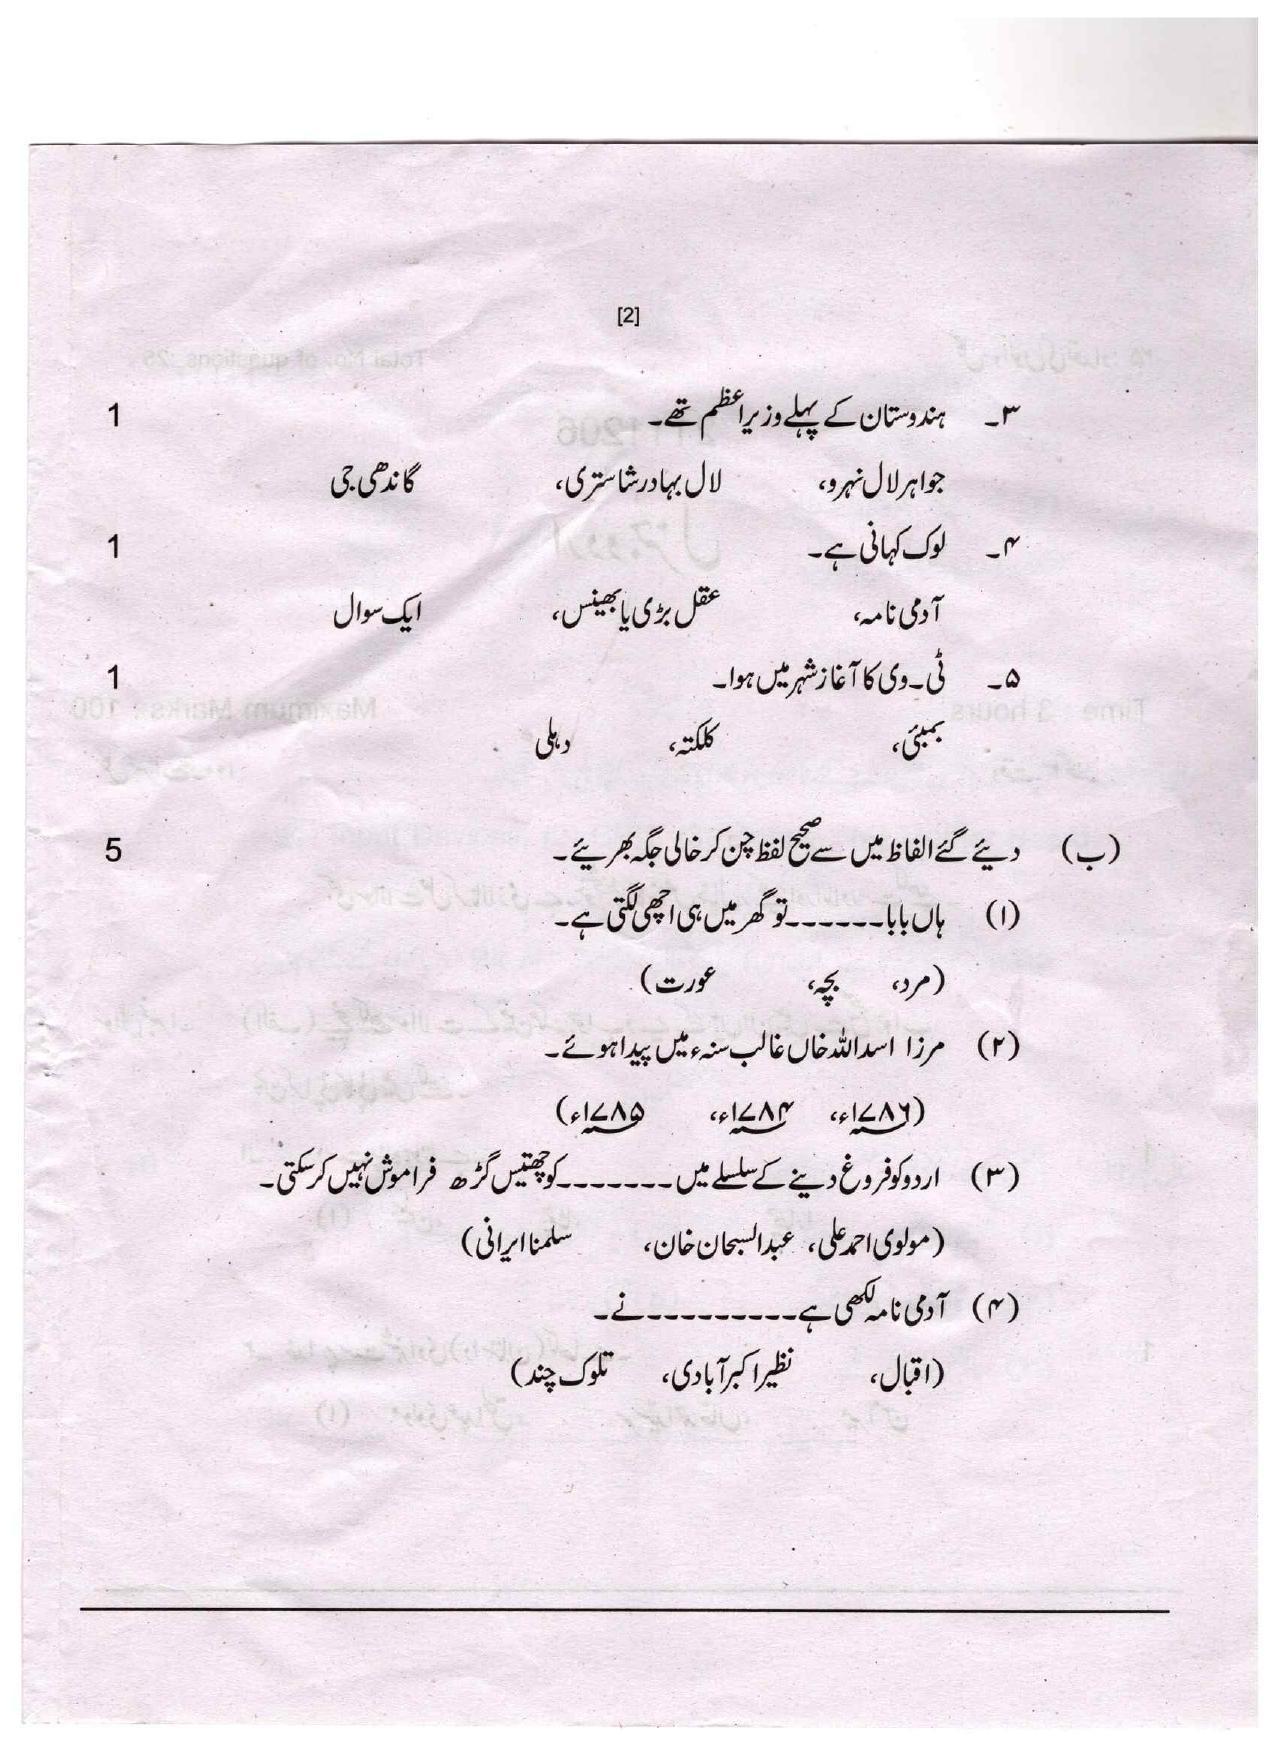 [2]
۳۔ ہندوستان کے پہلے وزیراعظم تھے۔ 1
جواہر لال نہرو، لال بہادر شاستری، گاندھی جی
۴۔ لوک کہانی ہے۔ 1
آدمی نامہ، عقل بڑی یا بھینس، ایک سوال
۵۔ ٹی۔وی کا آغاز شہر میں ہوا۔ 1
بمبئی، کلکتہ، دہلی
(ب) دیئے گئے الفاظ میں سے صحیح لفظ چن کر خالی جگہ بھریئے۔ 5
(۱) ہاں بابا۔۔۔۔۔۔تو گھر میں ہی اچھی لگتی ہے۔
(مرد، بچہ، عورت)
(۲) مرزا اسداللہ خاں غالب سنہء میں پیدا ہوئے۔
(۱۷۸۶ء، ۱۷۸۴ء، ۱۷۸۵ء)
(۳) اردو کو فروغ دینے کے سلسلے میں ۔۔۔۔۔۔۔کو چھتیس گڑھ فراموش نہیں کر سکتی۔
(مولوی احمد علی، عبدالسبحان خان، سلمنا ایرانی)
(۴) آدمی نامہ لکھی ہے۔۔۔۔۔۔۔۔۔نے۔
(اقبال، نظیر اکبر آبادی، تلوک چند)